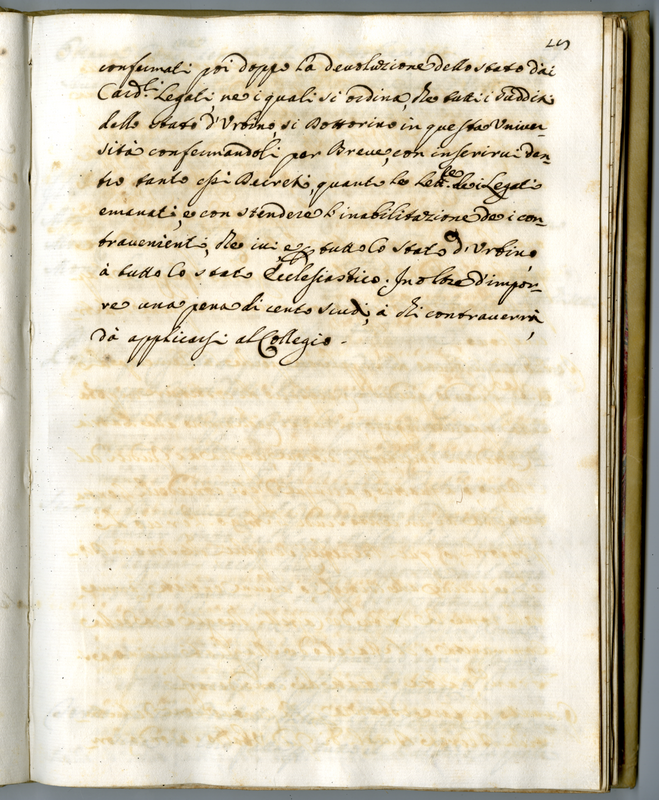 confermati poi doppo la devoluzione dello stato dai
Card.li Legati, ne i quali si ordina, che tutti i sudditi
dello stato d'Urbino, si Dottorino in questa Univer-
sità confermandoli per Breve, con inserirui den-
tro tanto essi Decreti, quanto le Lett.re dei Legati
emanati, e con stendere l'inabilitazione de i con-
travenienti, che iui è p tutto lo stato d'Urbino,
à tutto lo stato Ecclesiastico. Inoltre d'impor-
re una pena di cento scudi, à chi contraverrà,
dà applicarsi al Collegio.